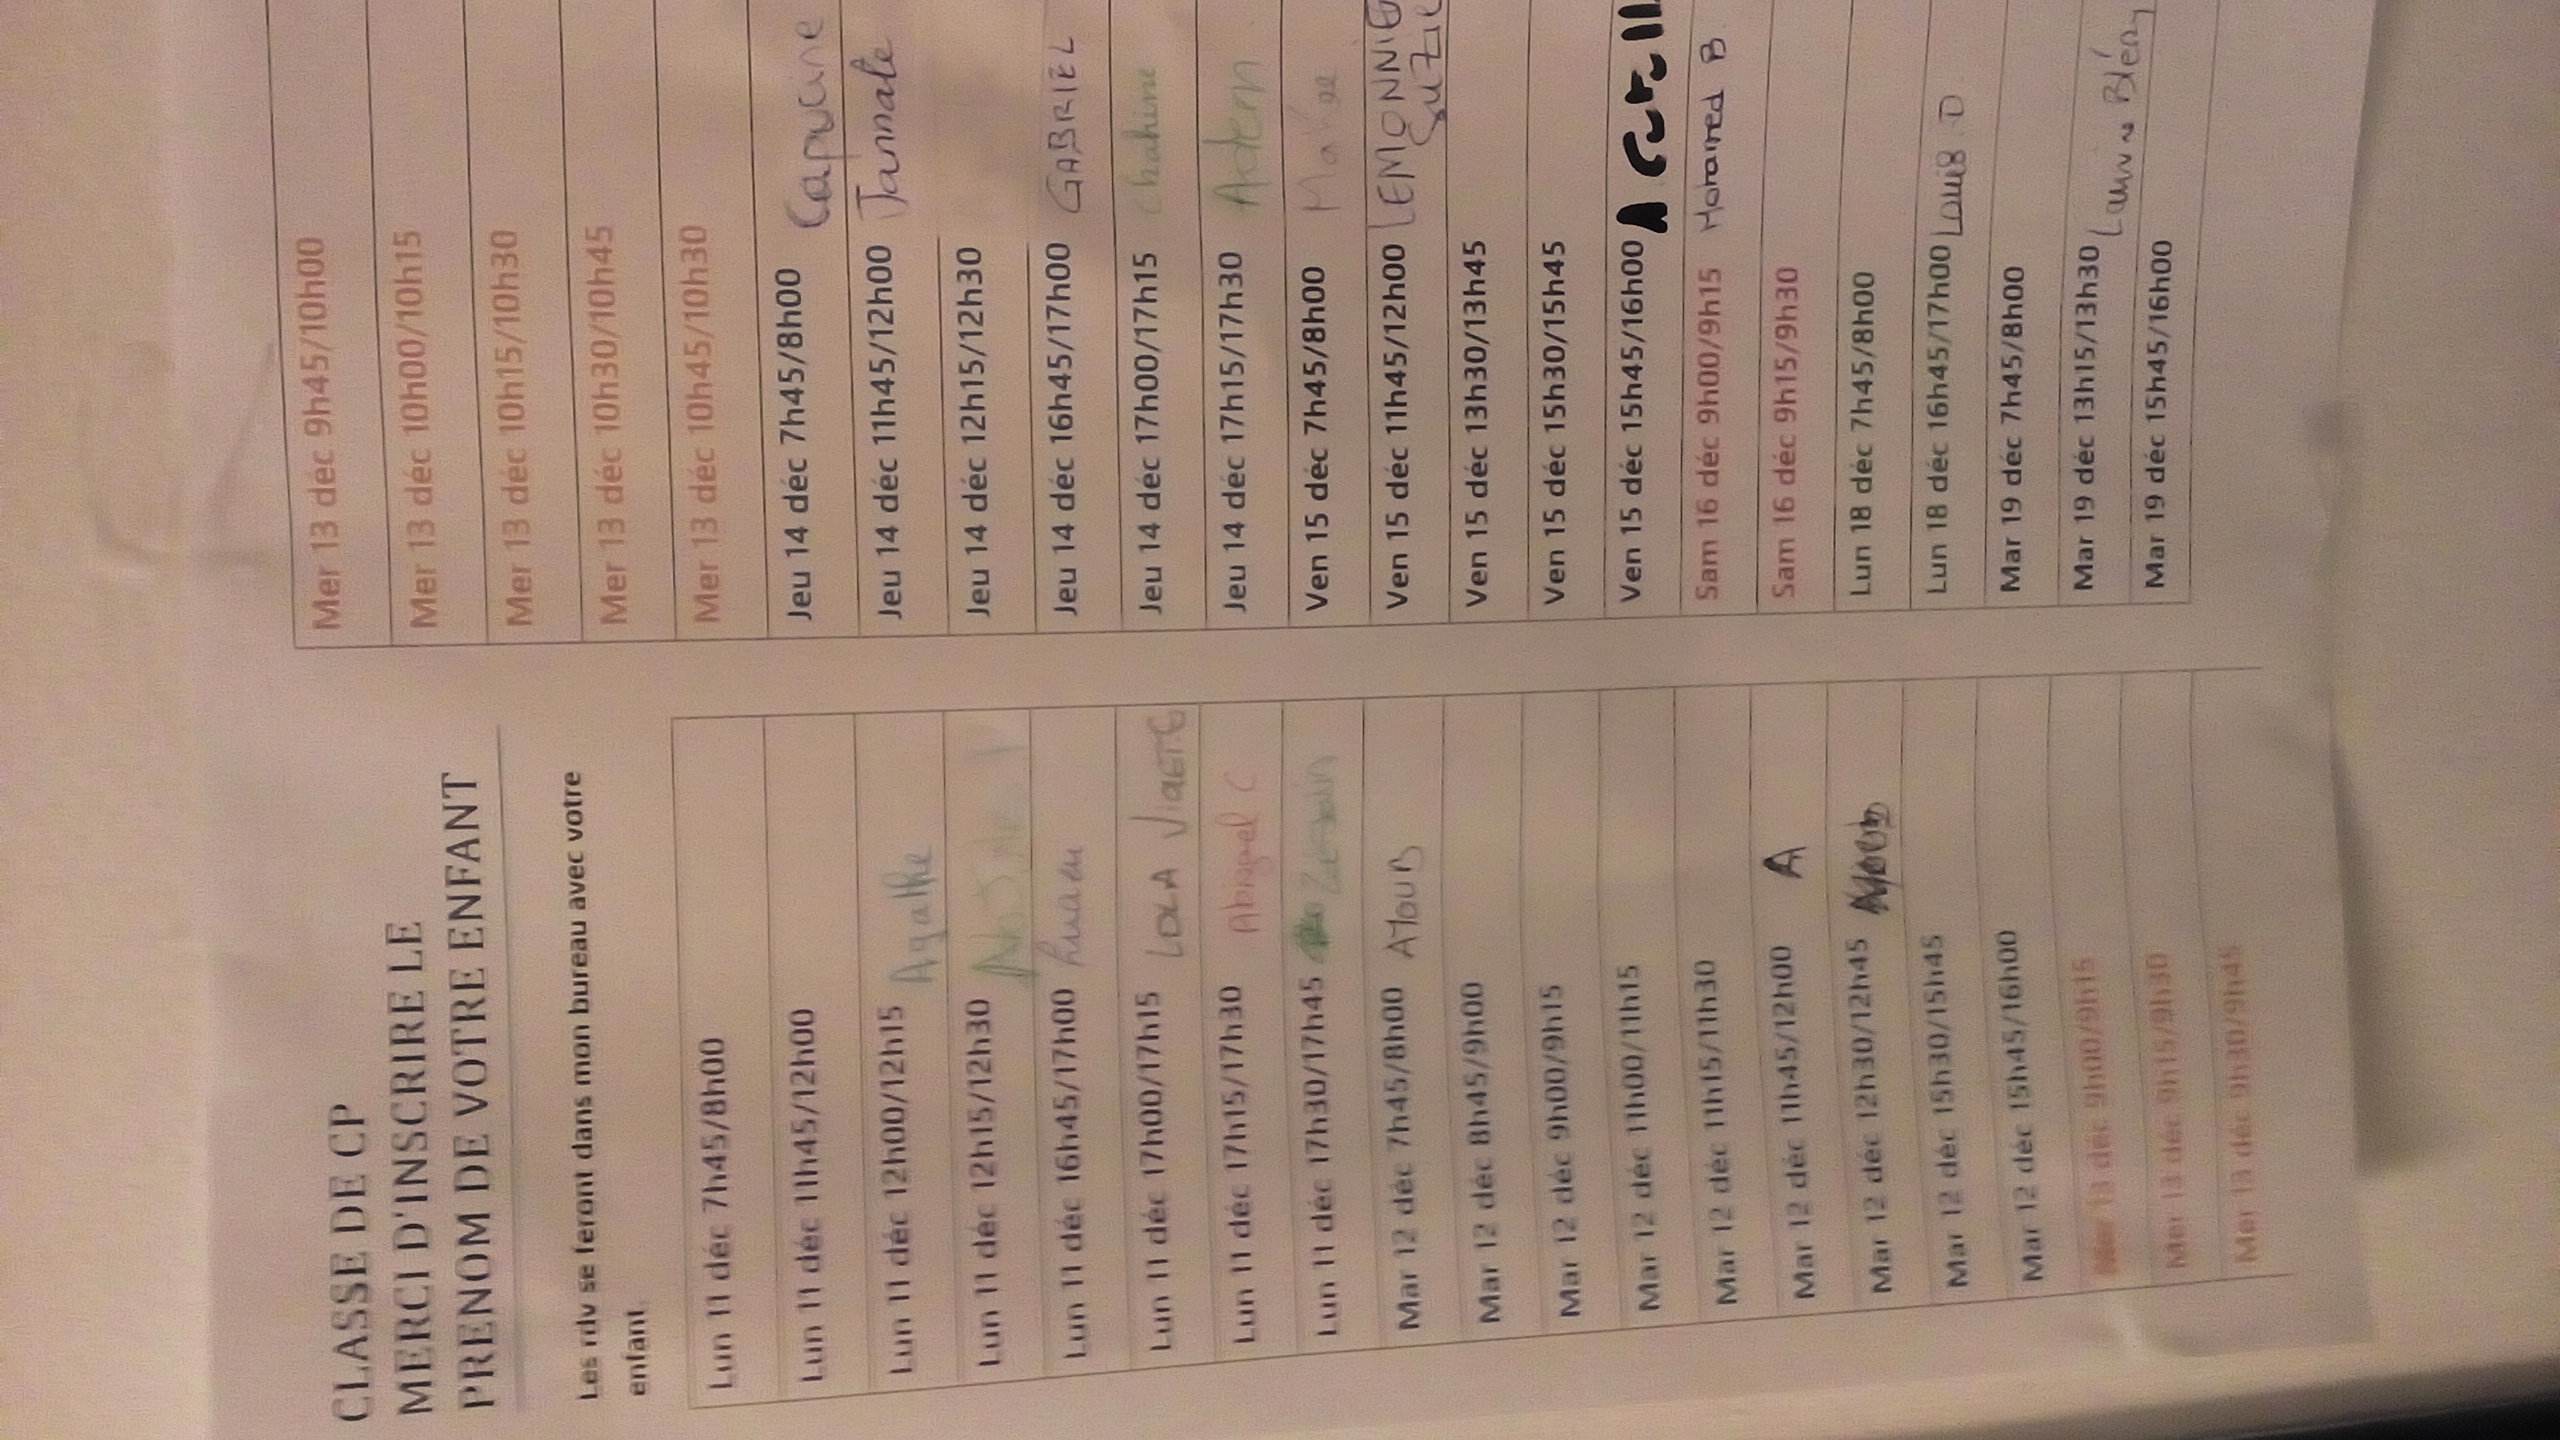 CLASSE DE CP
MERCI D'INSCRIRE LE
PRENOM DE VOTRE ENFANT
Les rdv se feront dans mon bureau avec votre
enfant.
Lun 11 déc 7h45/8h00
Lun 11 déc 11h45/12h00
Lun 11 déc 12h00/12h15 Agathe
Lun 11 déc 12h15/12h30
Lun 11 déc 16h45/17h00
Lun 11 déc 17h00/17h15 LOLA
Lun 11 déc 17h15/17h30 Abigael C
Lun 11 déc 17h30/17h45
Mar 12 déc 7h45/8h00 AYOUB
Mar 12 déc 8h45/9h00
Mar 12 déc 9h00/9h15
Mar 12 déc 11h00/11h15
Mar 12 déc 11h15/11h30
Mar 12 déc 11h45/12h00 A
Mar 12 déc 12h30/12h45
Mar 12 déc 15h30/15h45
Mar 12 déc 15h45/16h00
Mer 13 déc 9h00/9h15
Mer 13 déc 9h15/9h30
Mer 13 déc 9h30/9h45
Mer 13 déc 9h45/10h00
Mer 13 déc 10h00/10h15
Mer 13 déc 10h15/10h30
Mer 13 déc 10h30/10h45
Mer 13 déc 10h45/10h30
Jeu 14 déc 7h45/8h00 Capucine
Jeu 14 déc 11h45/12h00 Jannate
Jeu 14 déc 12h15/12h30
Jeu 14 déc 16h45/17h00 GABRIEL
Jeu 14 déc 17h00/17h15 Chahine
Jeu 14 déc 17h15/17h30 Adem
Ven 15 déc 7h45/8h00
Ven 15 déc 11h45/12h00 LEMONNIE
Suzie
Ven 15 déc 13h30/13h45
Ven 15 déc 15h30/15h45
Ven 15 déc 15h45/16h00
Sam 16 déc 9h00/9h15 Mohamed B
Sam 16 déc 9h15/9h30
Lun 18 déc 7h45/8h00
Lun 18 déc 16h45/17h00 Louis.D.
Mar 19 déc 7h45/8h00
Mar 19 déc 13h15/13h30
Mar 19 déc 15h45/16h00